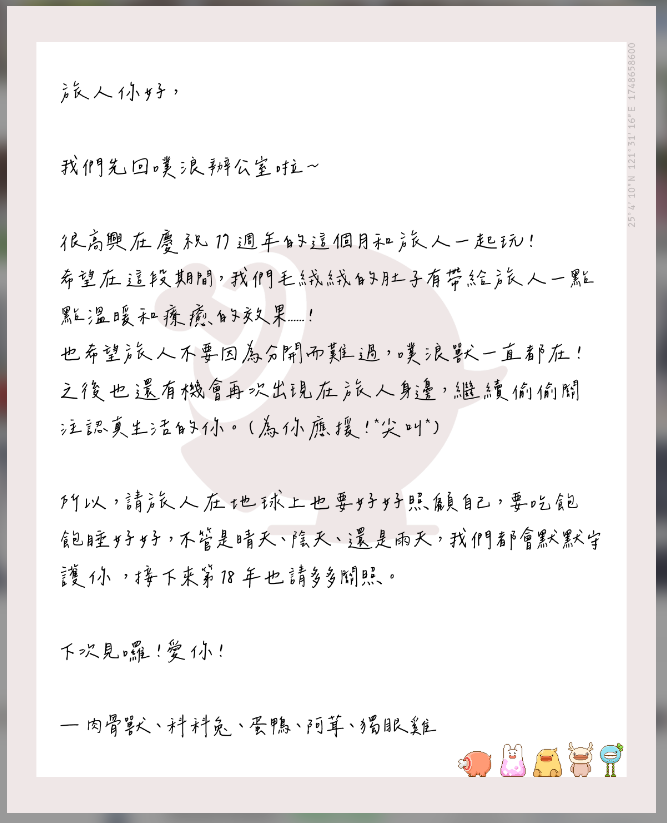 旅人你好，
我們先回噗浪辦公室啦～
很高興在慶祝 17 週年的這個月和旅人一起玩！
希望在這段期間，我們毛絨絨的肚子有帶給旅人一點
點溫暖和療癒的效果……！
也希望旅人不要因為分開而難過，噗浪獸一直都在！
之後也還有機會再次出現在旅人身邊，繼續偷偷關
注認真生活的你。(為你應援！*尖叫*)
所以，請旅人在地球上也要好好照顧自己，要吃飽
飽睡好好，不管是晴天、陰天、還是雨天，我們都會默默守
護你，接下來第 18 年也請多多關照。
下次見囉！愛你！
— 肉骨獸、科科兔、蛋鴨、阿茸、獨眼雞
25°4'10"N 121°31'16"E 1748658600